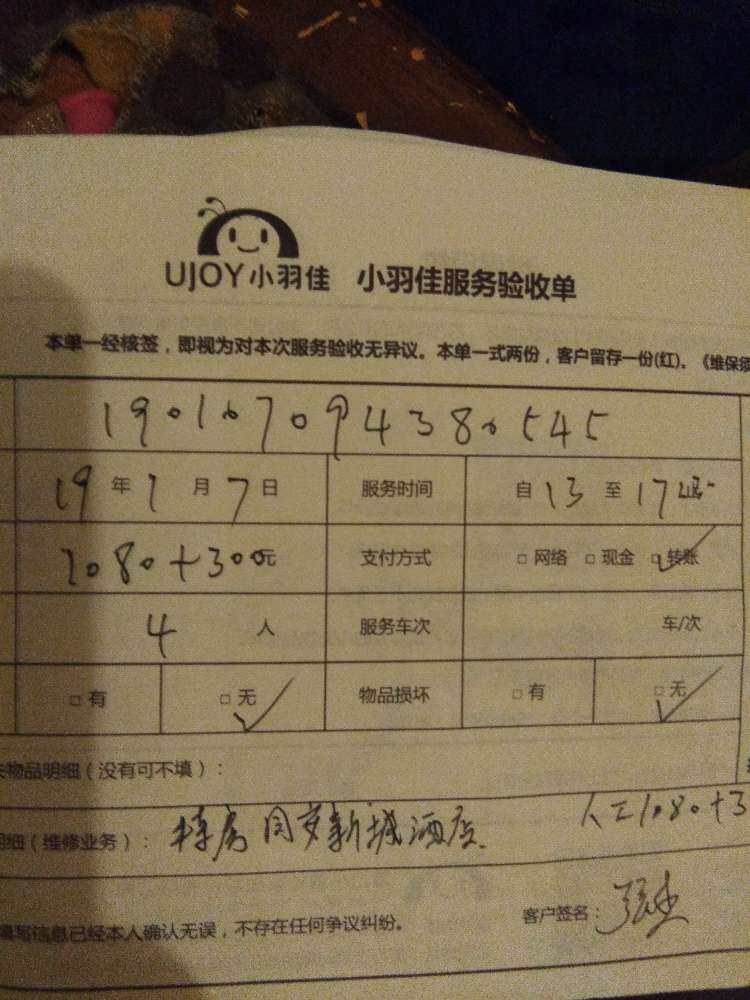 UJOY小羽佳 小羽佳服务验收单
本单一经核签，即视为对本次服务验收无异议。本单一式两份，客户留存一份(红)。《维保须
190107094380545
19年1月7日 服务时间 自13至17
1080+300元 支付方式 □网络 □现金 □转账
4人 服务车次 车/次
□有 □无 物品损坏 □有 □无
物品明细（没有可不填）：
明细（维修业务）： 新城酒店 人工1080+3
填写信息已经本人确认无误，不存在任何争议纠纷。 客户签名：